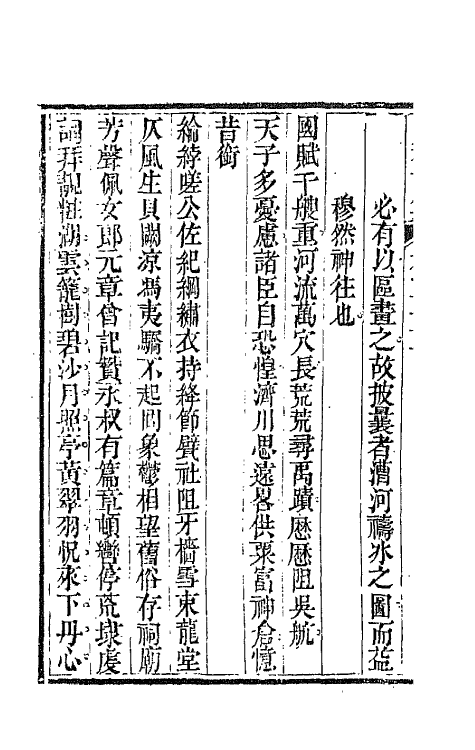 必有以區畫之故披曩者漕河禱冰之圖而益
穆然神往也
國賦千艘重河流萬穴長荒荒尋禹蹟歷歷阻吳航
天子多憂慮諸臣自恐惶濟川思遠畧供粟富神倉憶
昔銜
綸綍嗟公佐紀綱繡衣持絳節甓社阻牙檣雪柬龍堂
仄風生貝闕凉馮夷驕不起罔象鬱相望舊俗存祠廟
芳聲佩女郎元章曾記贊永叔有篇章頓轡停荒埭虔
詞拜靚粧湖雲籠樹碧沙月照亭黄翠羽倐來下丹心